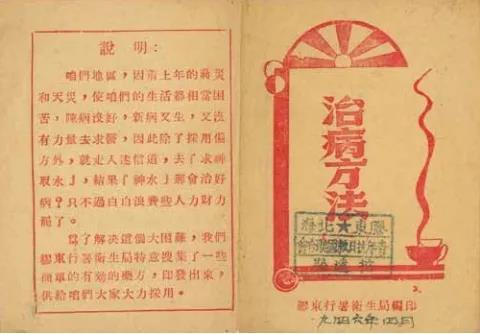 說 明：
咱們地區，因前上年的蔣災
和天災，使咱們的生活都相當困
苦，陳病沒好，新病又生，又沒
有力量去求醫，因此除了採用偏
方外，就走入迷信道，去「求神
取水」，結果「神水」那會治好
病？只不過白白浪費些人力財力
罷了。
爲了解決這個大困難，我們
膠東行署衛生局特意搜集了一些
簡單的有効的藥方，印發出來，
供給咱們大家大力採用。
治病方法
膠東★北海
膠東行署衛生局編印
九四六年四月